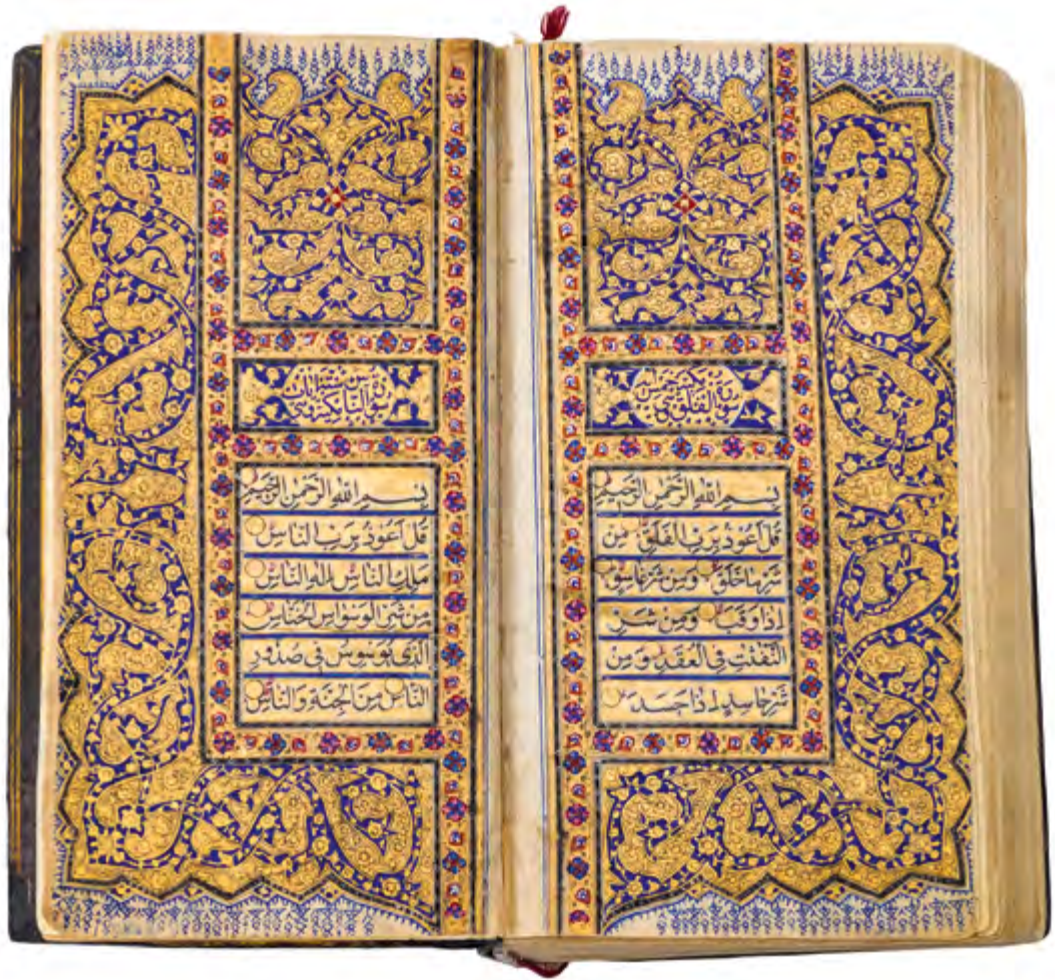 سورة الفلق
بِسْمِ اللهِ الرَّحْمٰنِ الرَّحِيْمِ
قُلْ اَعُوْذُ بِرَبِّ الْفَلَقِ مِنْ
شَرِّ مَا خَلَقَ وَمِنْ شَرِّ غَاسِقٍ
اِذَا وَقَبَ وَمِنْ شَرِّ
النَّفّٰثٰتِ فِى الْعُقَدِ وَمِنْ
شَرِّ حَاسِدٍ اِذَا حَسَدَ
سورة الناس
بِسْمِ اللهِ الرَّحْمٰنِ الرَّحِيْمِ
قُلْ اَعُوْذُ بِرَبِّ النَّاسِ
مَلِكِ النَّاسِ اِلٰهِ النَّاسِ
مِنْ شَرِّ الْوَسْوَاسِ الْخَنَّاسِ
الَّذِى يُوَسْوِسُ فِى صُدُوْرِ
النَّاسِ مِنَ الْجِنَّةِ وَالنَّاسِ